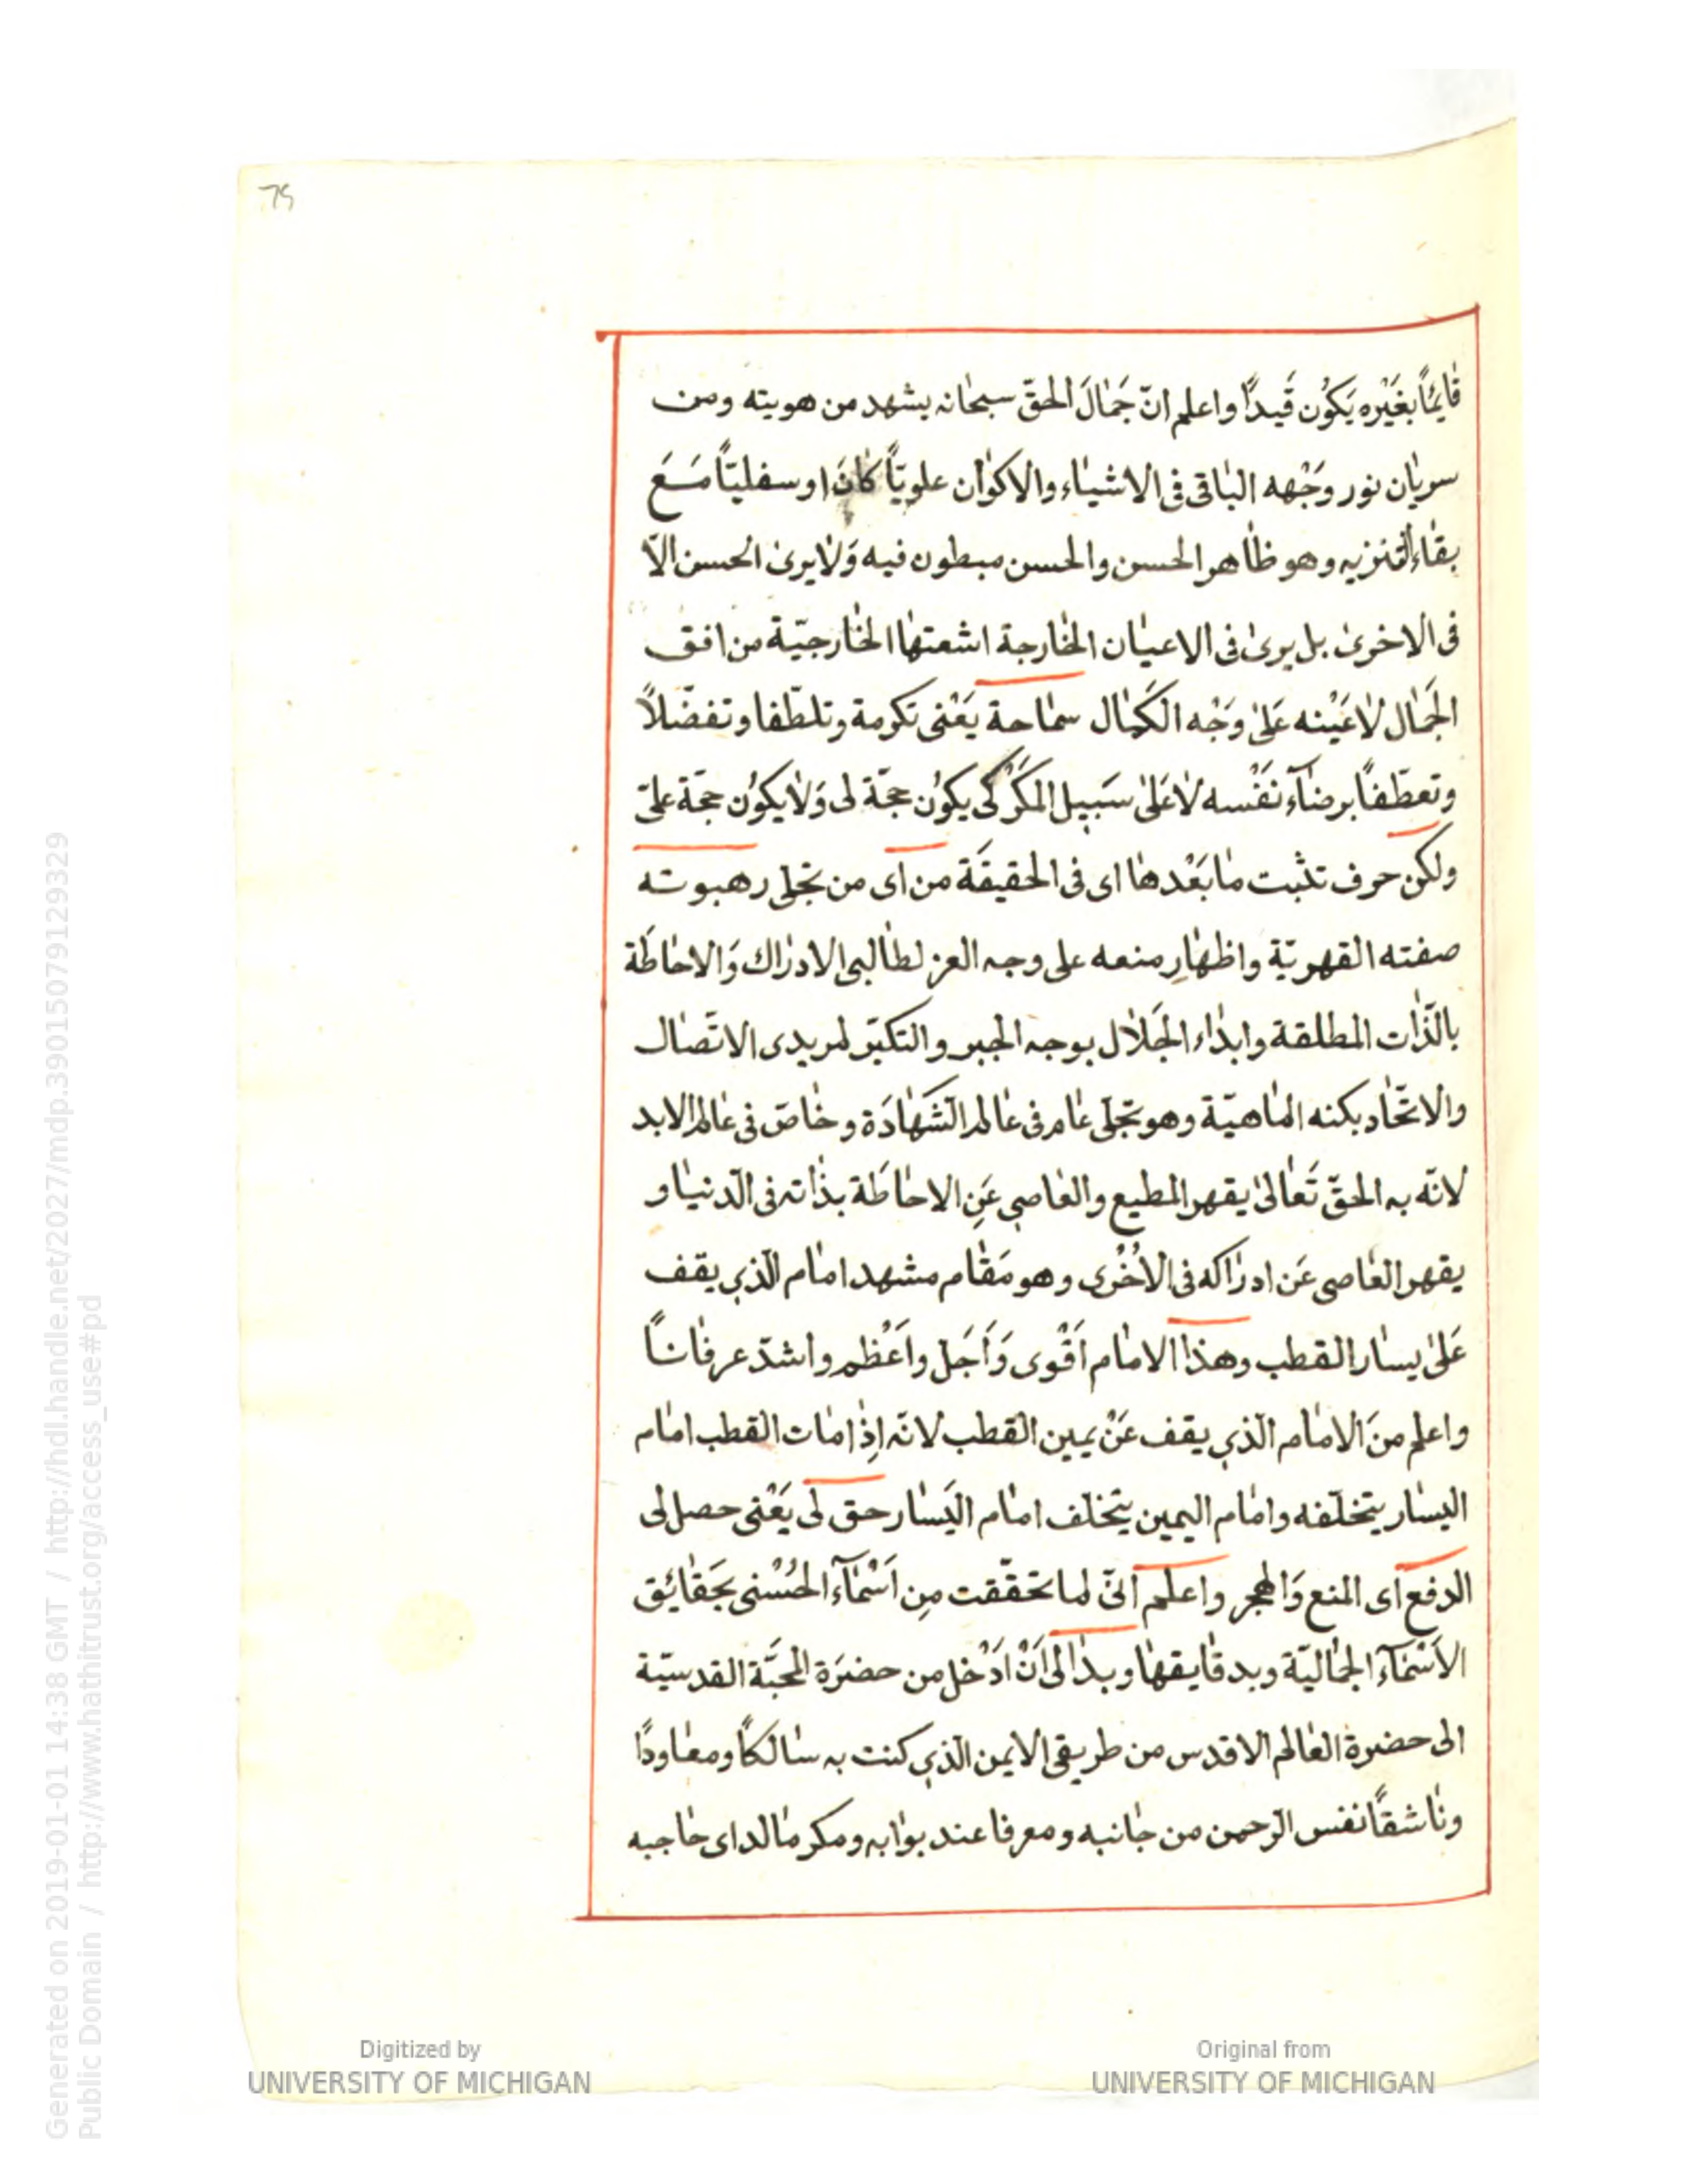 75
قٰائِمًا بغَيْره يَكُون قَيدًا واعلم انّ جَمٰالَ الحقّ سبحٰانه يشهد من هويته ومن
سريٰان نور وَجْهه البٰاقى فى الاشيٰاء والاكوٰان علويّاً كٰانَ او سفليّاً مَعَ
بقٰاء التنزيه وهو ظٰاهر الحسن والحسن مبطون فيه وَلٰا يرىٰ الحسن الّا
فى الاخرىٰ بل يرىٰ فى الاعيٰان الخٰارجة اشعتهٰا الخٰارجيّة من افق
الجَمٰال لٰا عَيْنه عَلىٰ وَجْه الكَمٰال سمٰاحة يَعْنى تكرمة وتلطّفا وتفضّلاً
وتعطّفاً برضٰآء نَفْسه لٰا عَلىٰ سَبيل المَكْر كَى يكوُن حجّة لى وَلٰا يكوُن حجّة علىّ
ولكن حرف تثبت مٰا بَعْدهٰا اى فى الحقيقَة من اى من تجلى رهبوته
صفته القهريّة واظهٰارِ منعه على وجه العز لطٰالبى الادرٰاك وَالاحٰاطَة
بالذّٰات المطلقة وابدٰاء الجَلٰال بوجه الجبر والتكبّر لمريدى الاتّصٰال
والاتّحٰاد بكنه المٰاهيّة وهو تجلّى عٰام فى عٰالم الشَهٰادَة وخٰاصّ فى عٰالم الابد
لانّه به الحقّ تَعٰالىٰ يقهر المطيع والعٰاصى عَنِ الاحٰاطَة بذٰاته فى الدّنيٰا و
يقهر العٰاصى عَن ادرٰاكه فى الاُخْرٰى وهو مَقٰام مشهد امٰام الّذى يقف
عَلىٰ يسٰار القطب وهذٰا الامٰام اَقْوى وَاَجَلّ واَعْظم واشدّ عرفٰاناً
واعلم منَ الامٰام الّذى يقف عَنْ يمين القطب لانّه اِذٰا مٰات القطب امٰام
اليسٰار يتخلّفه وامٰام اليمين يتخلّف امٰام اليَسٰار حق لى يَعْنى حصل لى
الدفع اى المنع وَالهجر واعلم انّى لما تحقّقت مِن اَسْمٰآء الحُسْنى بحَقٰائِق
الاَسْمٰآء الجمٰاليّة وبدقٰايقهٰا وبدٰا لى اَنْ ادْخل من حضرَة المحبَّة القدسيّة
الى حضرة العٰالم الاقدس من طريقى الايمن الّذى كنت به سٰالكاً ومعٰاودًا
ونٰاشقًا نفس الرّحمن من جٰانبه ومعرفا عند بوّابه ومكرمٰا لداى حٰاجبه
Generated on 2019-01-01 14:38 GMT / http://hdl.handle.net/2027/mdp.39015079129329
Public Domain / http://www.hathitrust.org/access_use#pd
Digitized by
UNIVERSITY OF MICHIGAN
Original from
UNIVERSITY OF MICHIGAN